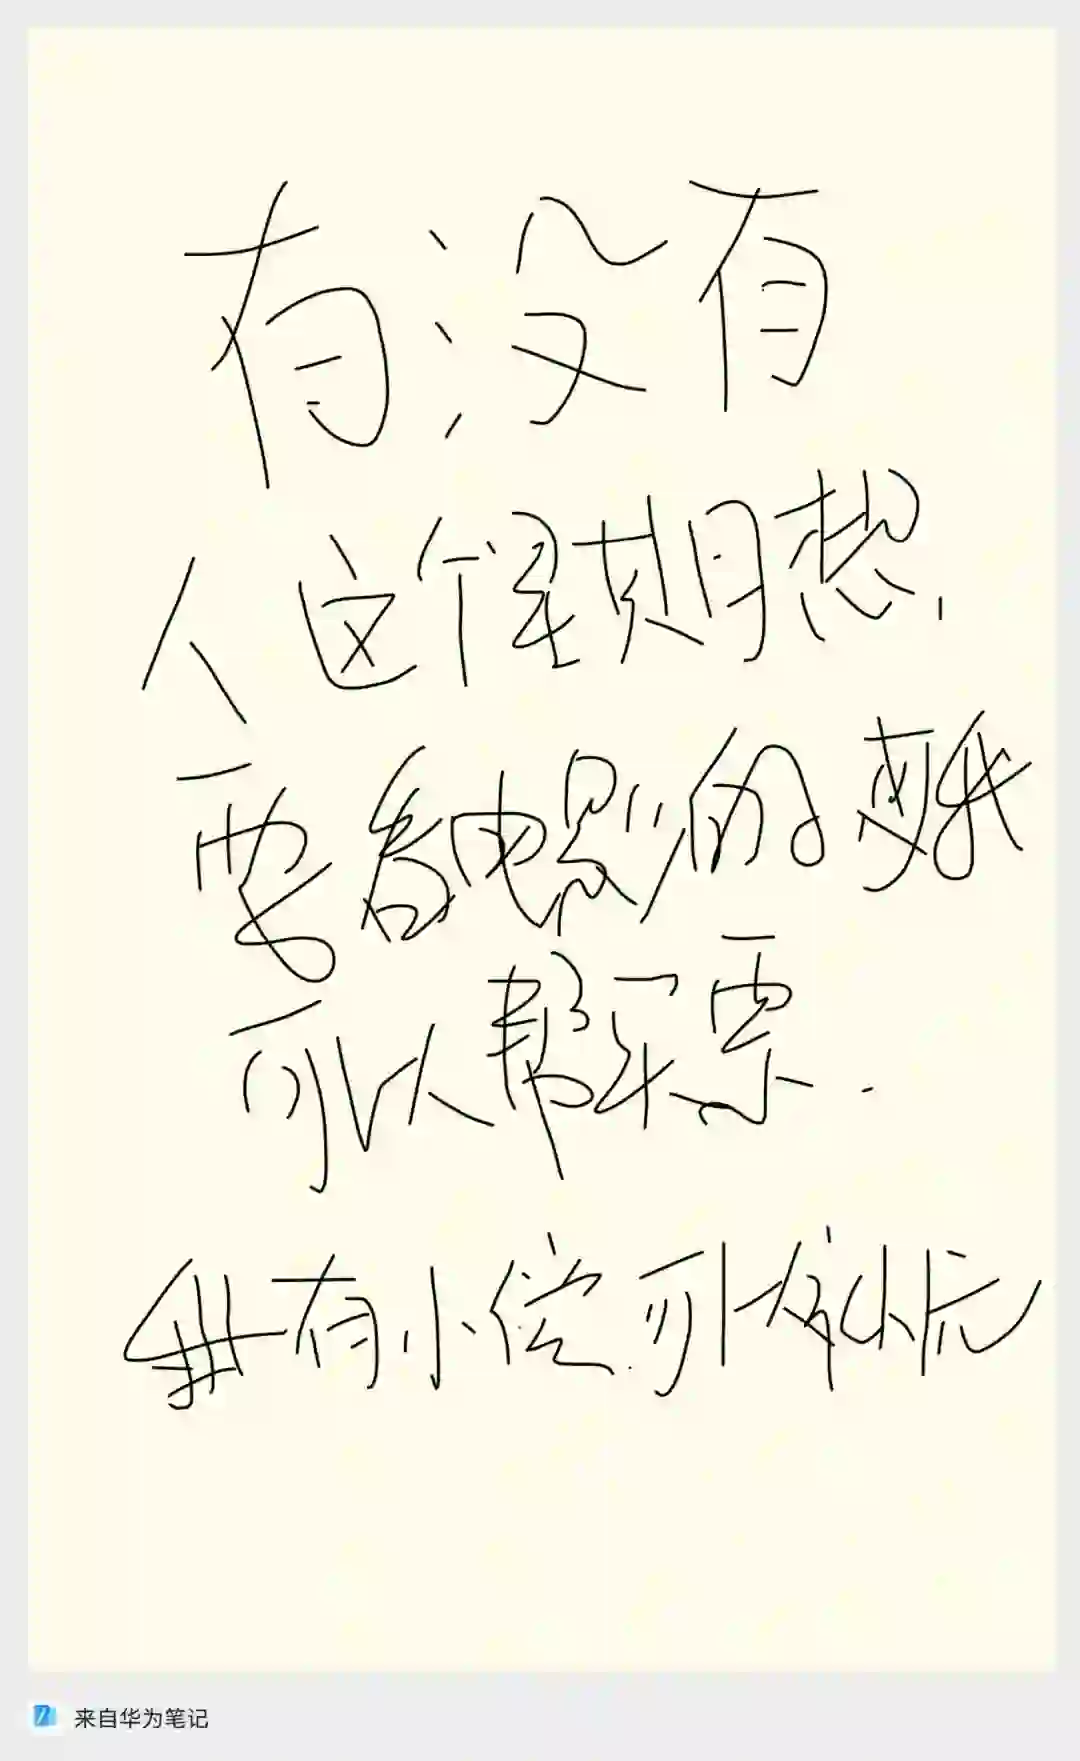 有没有
人这个星期想
要看电影的 我
可以帮买票.
有小偿可
来自华为笔记